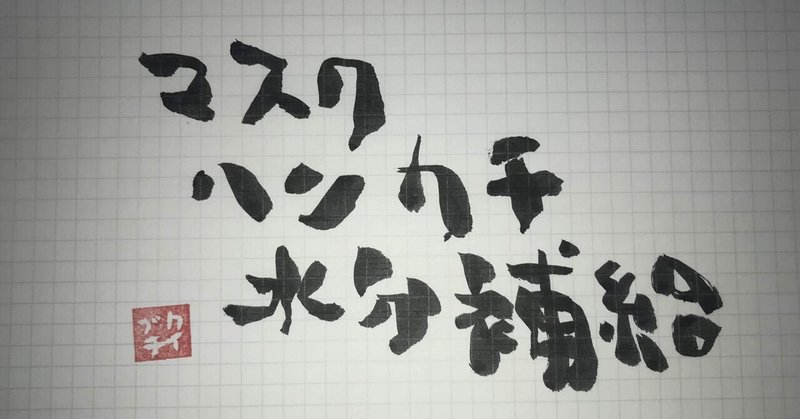 マスク
ハンカチ
水分補給
クイ
ブチ